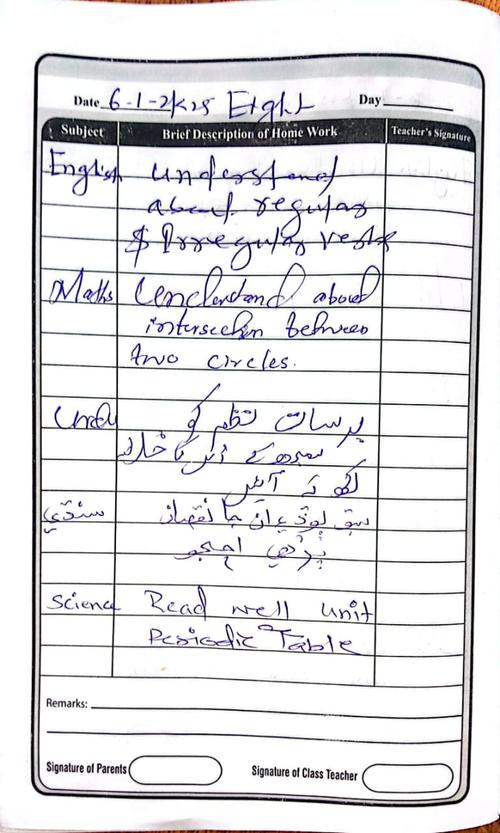 Date 6-1-2k25 Eight Day
Subject Brief Description of Home Work Teacher's Signature
English understand
about regular
& Irregular verbs
Maths Understand about
intersection between
two circles.
Urdu برسات نظم کو
سمجھ کے اس کا خلاصہ
لکھ کے آئیں
سنڌي سبق لوڊ جا نقصان
پڙهي اچجو
Science Read well unit
Periodic Table
Remarks:
Signature of Parents Signature of Class Teacher